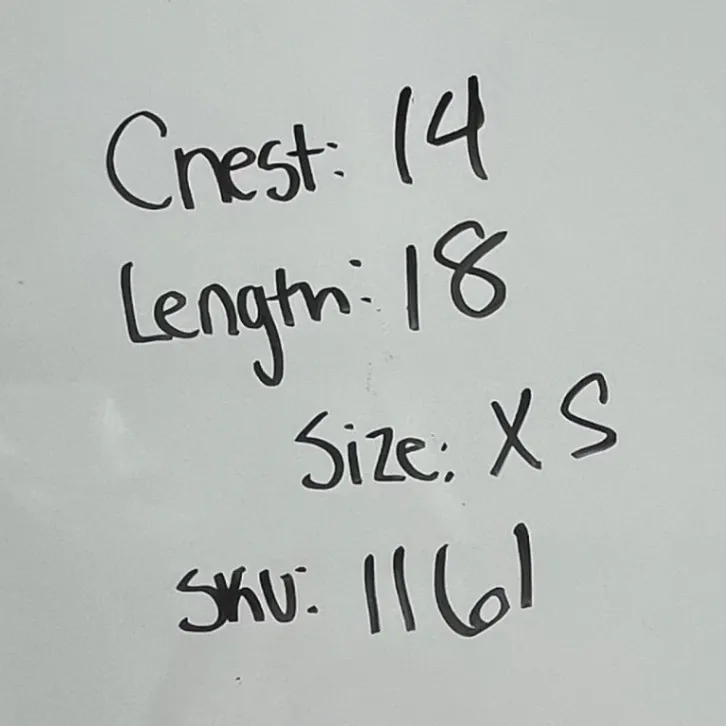 Chest: 14
Length: 18
Size: XS
SKU: 1161